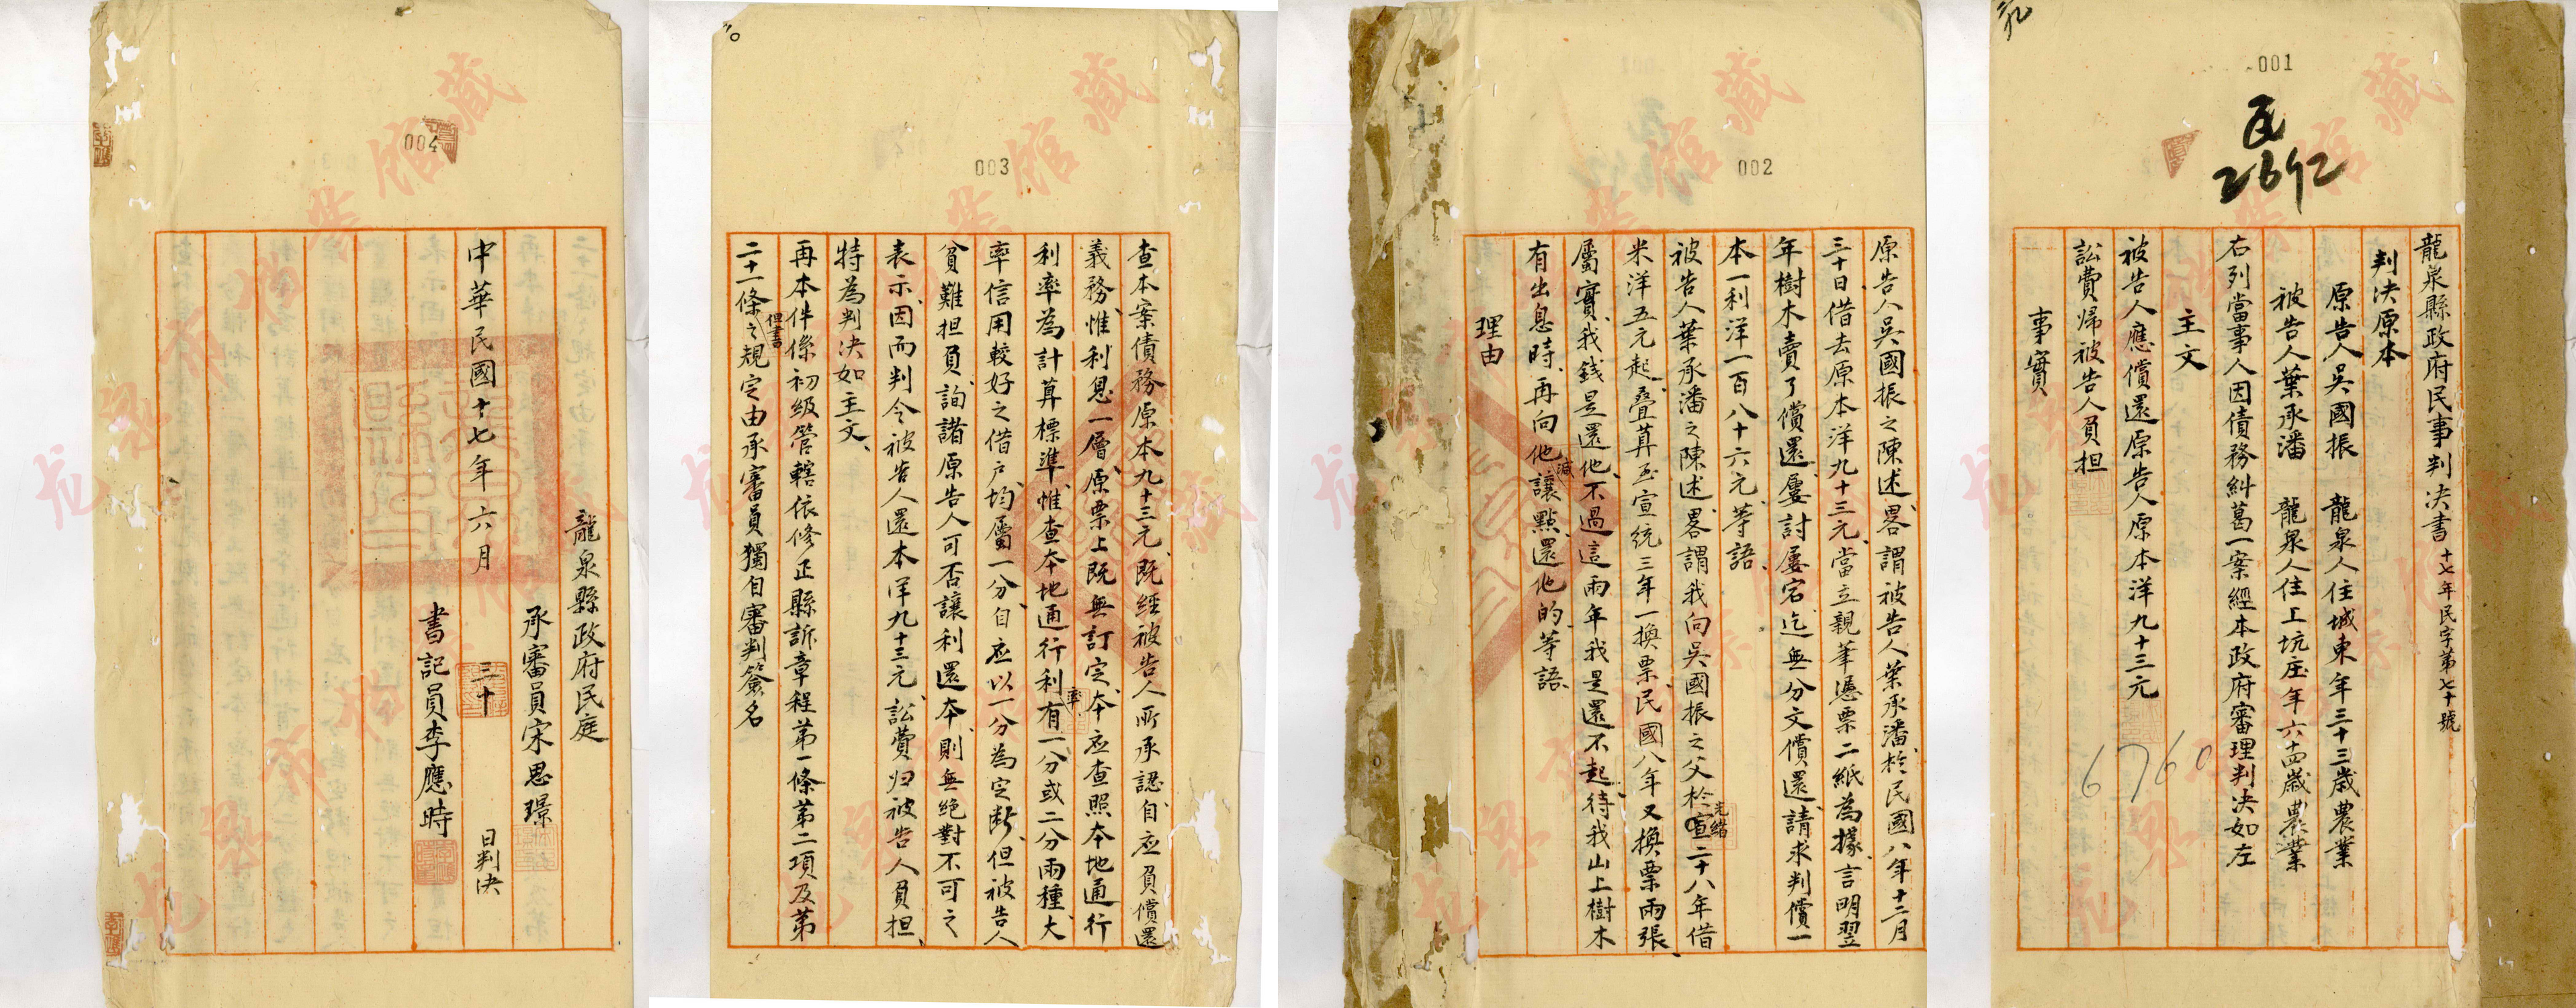 001
民
2692
龍泉縣政府民事判决書十七年民字第七十號
判决原本
原告人吳國振 龍泉人住城東年三十三歲農業
被告人葉承潘 龍泉人住上坑庄年六十四歲農業
右列當事人因債務糾葛一案經本政府審理判决如左
主文
被告人應償還原告人原本洋九十三元
訟費歸被告人負担
事實
6760
002
原告人吳國振之陳述畧謂被告人葉承潘於民國八年十二月
三十日借去原本洋九十三元當立親筆憑票二紙為據言明翌
年樹木賣了償還屢討屢宕迄無分文償還請求判償一
本一利洋一百八十六元等語
被告人葉承潘之陳述畧謂我向吳國振之父於光緒二十八年借
米洋五元起叠算至宣統三年一換票民國八年又換票兩張
屬實我錢是還他不過這兩年我是還不起待我山上樹木
有出息時再向他讓減點還他的等語
理由
003
查本案債務原本九十三元既經被告人所承認自应負償還
義務惟利息一層原票上既無訂定本应查照本地通行
利率為計算標準惟查本地通行利率有一分或二分兩種大
率信用較好之借户均屬一分自应以一分為定断但被告人
貧難担負詢諸原告人可否讓利還本則無絶對不可之
表示因而判令被告人還本洋九十三元訟費归被告人負担
特為判决如主文
再本件係初級管轄依修正縣訴章程第一條第二項及第
二十一條但書之規定由承審員獨自審判簽名
004
龍泉縣政府民庭
承審員宋思璟
中華民國十七年六月三十日判决
書記員李應時
龙泉市档案馆藏